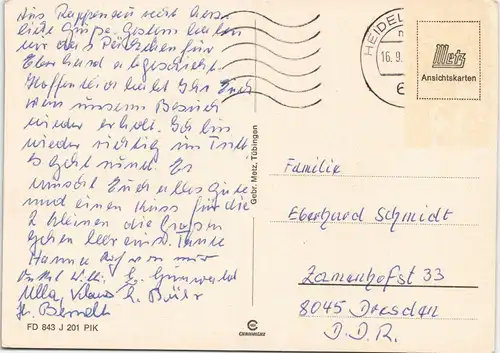 Aus Rappenau recht herz-
liche Grüße. Gestern haben
wir das Päckchen für
Eberhard abgeschickt.
Hoffentlich habt Ihr Euch
von unserem Besuch
wieder erholt. Ich bin
wieder richtig im Tritt
es geht rund. Es
wünscht Euch alles Gute
und einen Kuss für die
2 kleinen die Großen
gehen leer aus. Tante
Hanna
Onkel Willi
Ulla, Klaus
HEIDEL
16. 9.
6
Metz
Ansichtskarten
Gebr. Metz, Tübingen
Familie
Eberhard Schmidt
Zamenhofst 33
8045 Dresden
D.D.R.
FD 843 J 201 PIK